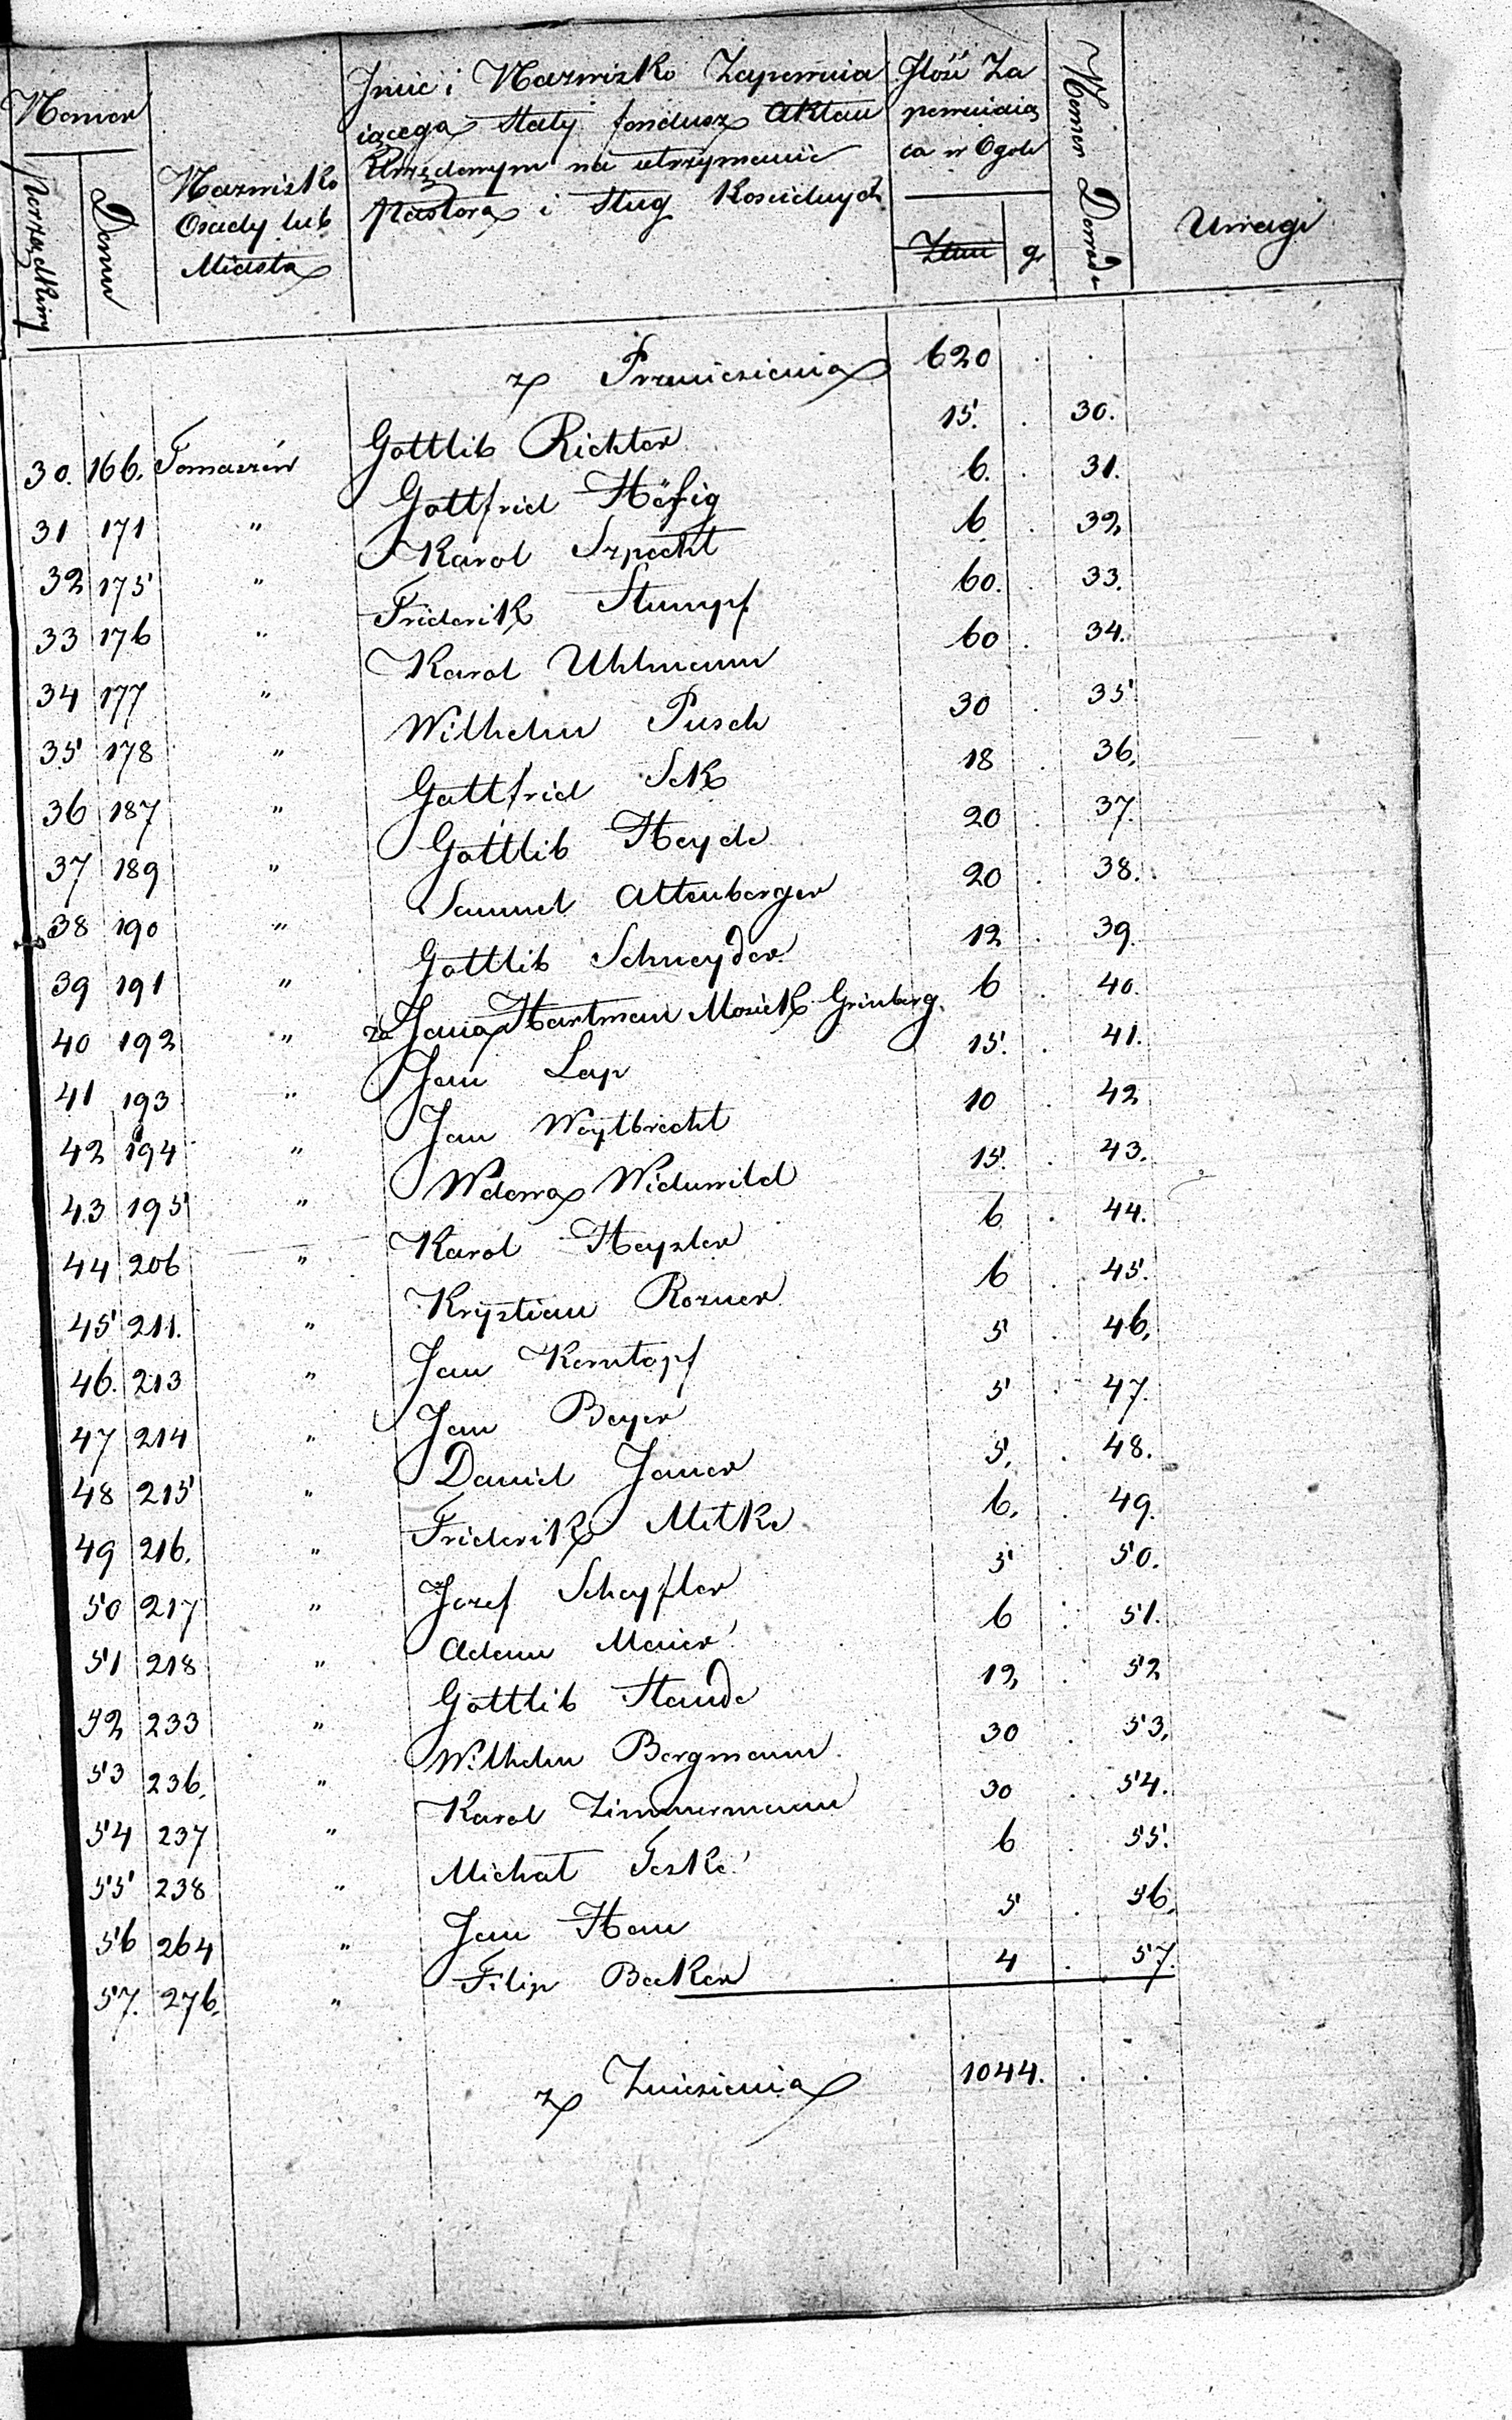 Numer
Porządkowy
Domu
Nazwisko
Osady lub
Miasta
Jmie i Nazwisko Zapewnia
iącego stały fundusz Aktem
Urzędowym na utrzymanie
Pastora i sług Koscielnych
Jlość Za
pewniaią
ca w Ogole
Złwu gr
Numer Dowodu
Uwagi
z Przeniesienia 620
30. 166. Tomaszów Gottlib Richter 15. 30.
31 171 " Gottfrid Höfig 6. 31.
32 175 " Karol Szpecht 6 32
33 176 " Friderik Stumpf 60. 33.
34 177 " Karol Uhlmann 60 34.
35 178 " Wilhelm Pusch 30 35
36 187 " Gottfrid Sek 18 36.
37 189 " Gottlib Heyde 20 37.
38 190 " Samuel Altenberger 20 38.
39 191 " Gottlib Schneyder 12 39.
40 192 " za Jana Hartman Mosiek Grinberg 6 40.
41 193 " Jan Lap 15. 41.
42 194 " Jan Weytbrecht 10 42
43 195 " Wdowa Widuwild 15. 43.
44 206 " Karol Heyzler 6 44.
45 211. " Krystian Rozner 6 45.
46. 213 " Jan Kerntopf 5 46.
47 214 " Jan Beyer 5 47.
48 215 " Daniel Janer 5. 48.
49 216. " Friderik Metke 6. 49.
50 217 " Jozef Scheyfler 5 50.
51 218 " Adam Maier 6 51.
52 233 " Gottlib Staude 12 52
53 236. " Wilhelm Bergmann 30 53.
54 237 " Karol Zimmermann 30 54.
55 238 " Michał Teske 6 55.
56 264 " Jan Han 5 56.
57. 276. " Filip Beker 4 57.
z Zniesienia 1044.